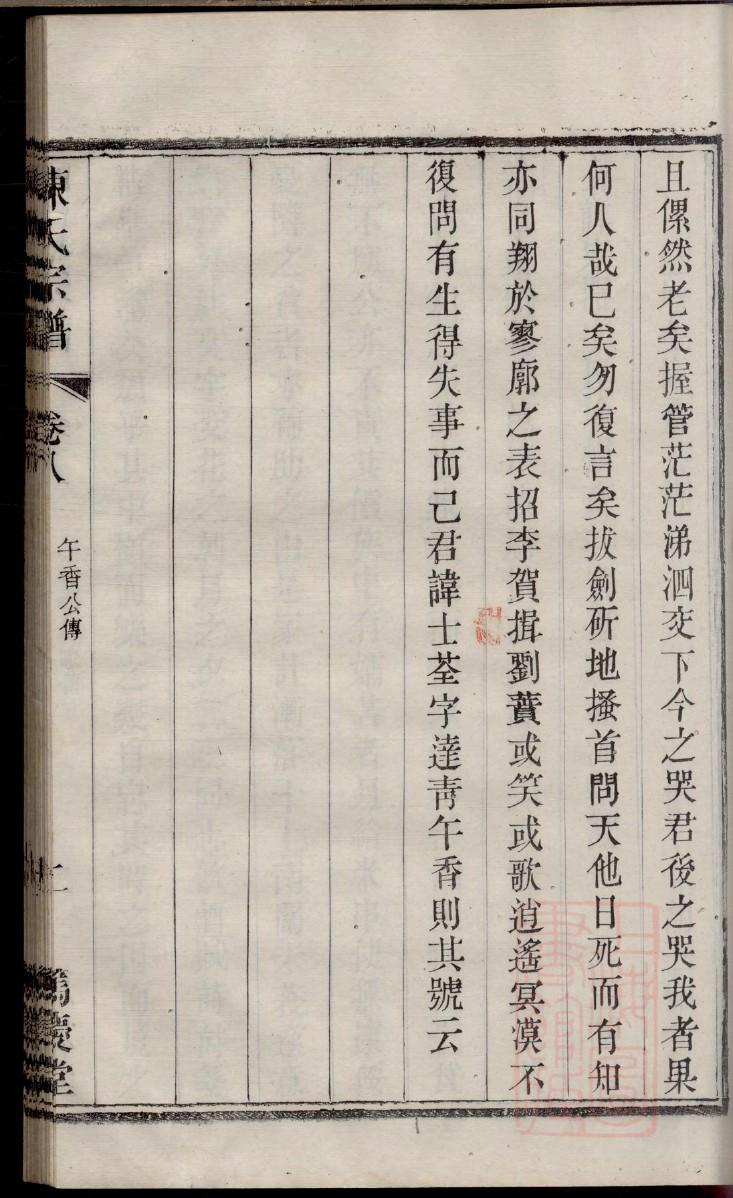 且傫然老矣握管茫茫涕泗交下今之哭君後之哭我者果
何人哉已矣勿復言矣拔劍斫地搔首問天他日死而有知
亦同翔於寥廓之表招李賀揖劉蕡或笑或歌逍遙冥漠不
復問有生得失事而己君諱士荃字達靑午香則其號云
陳氏宗譜
卷八
午香公傳
二
篤慶堂